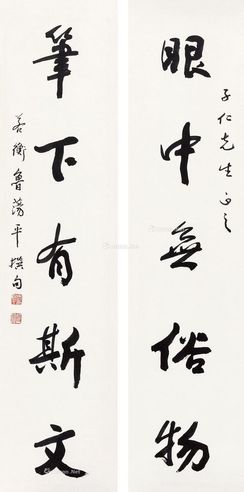 子仁先生正之
眼中無俗物
筆下有斯文
若衡魯蕩平撰句